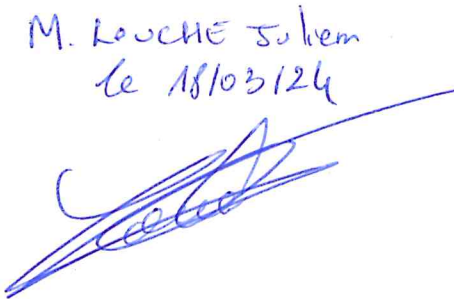 M. LOUCHE Julien
le 18/03/24